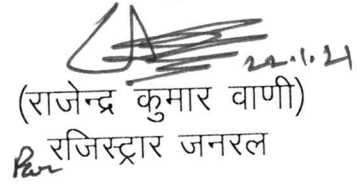 22.1.21
(राजेन्द्र कुमार वाणी)
रजिस्ट्रार जनरल